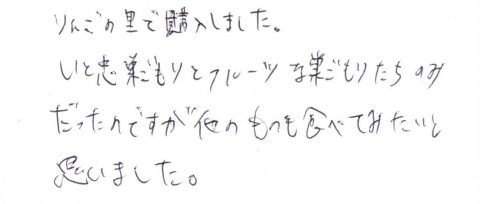 りんごの里で購入しました。
いと忠巣ごもりとフルーツな巣ごもりたちのみ
だったのですが他のもつも食べてみたいと
思いました。